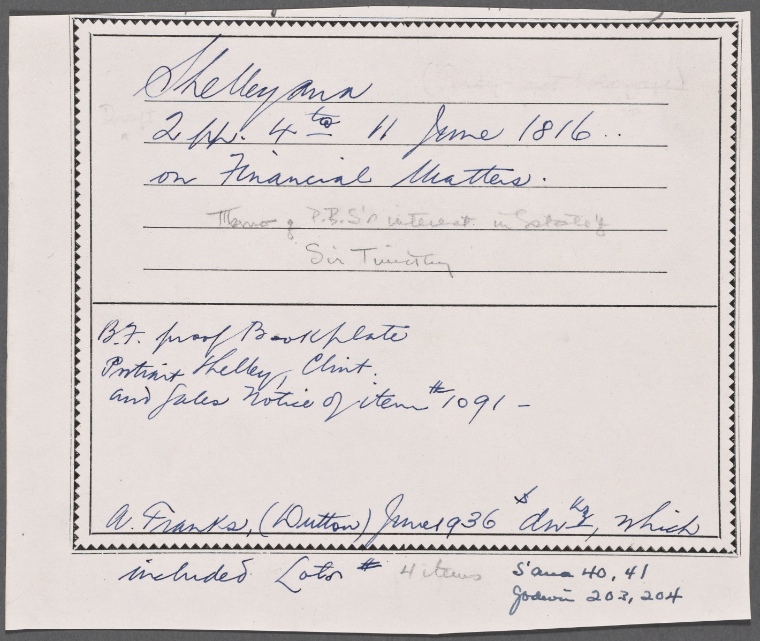 Shelleyana
2 pp. 4to 11 June 1816..
on Financial Matters.
Memo of P.B.S's interest in Estate of
Sir Timothy
B.F. proof Bookplate
Portrait Shelley, Clint.
and Sales Notice of item #1091 -
A. Franks, (Dutton) June 1936 $ which
included Lots # 4 items S'ana 40, 41
Godwin 203, 204